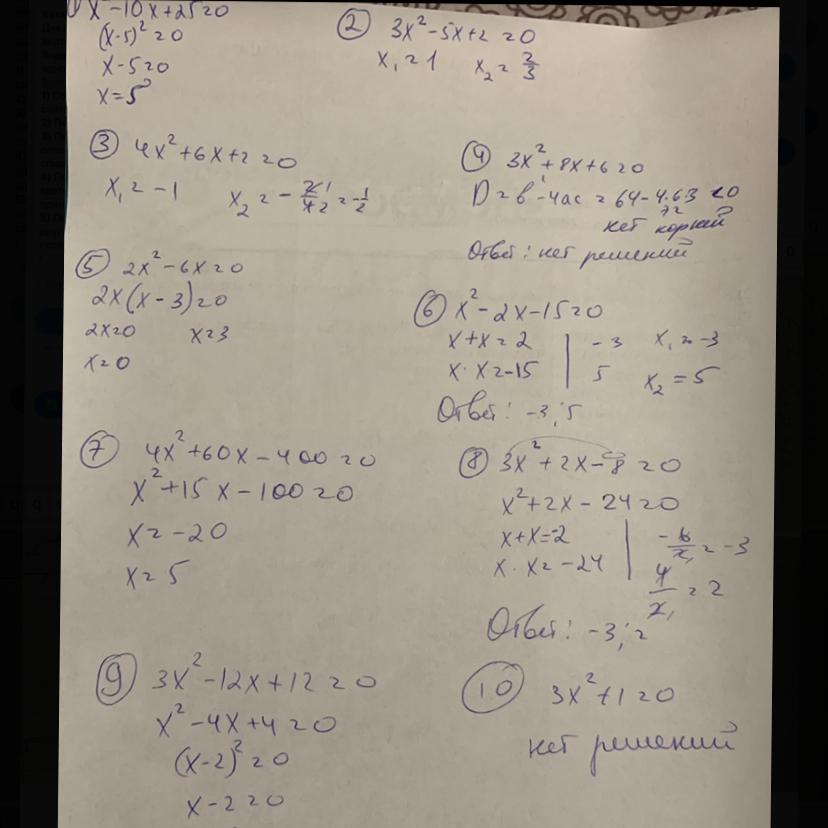 1) x² - 10x + 25 = 0
(x-5)² = 0
x - 5 = 0
x = 5
② 3x² - 5x + 2 = 0
x₁ = 1 x₂ = 2/3
③ 4x² + 6x + 2 = 0
x₁ = -1 x₂ = -2/4 = -1/2
④ 3x² + 8x + 6 = 0
D = b² - 4ac = 64 - 4·6·3 < 0
72
нет корней
Ответ: нет решений
⑤ 2x² - 6x = 0
2x(x - 3) = 0
2x = 0 x = 3
x = 0
⑥ x² - 2x - 15 = 0
x + x = 2 | -3 x₁ = -3
x · x = -15 | 5 x₂ = 5
Ответ: -3; 5
⑦ 4x² + 60x - 400 = 0
x² + 15x - 100 = 0
x = -20
x = 5
⑧ 3x² + 2x - 8 = 0
x² + 2x - 24 = 0
x + x = -2 | -6/2 = -3
x · x = -24 | 4/2 = 2
Ответ: -3; 2
⑨ 3x² - 12x + 12 = 0
x² - 4x + 4 = 0
(x-2)² = 0
x - 2 = 0
⑩ 3x² + 1 = 0
нет решений